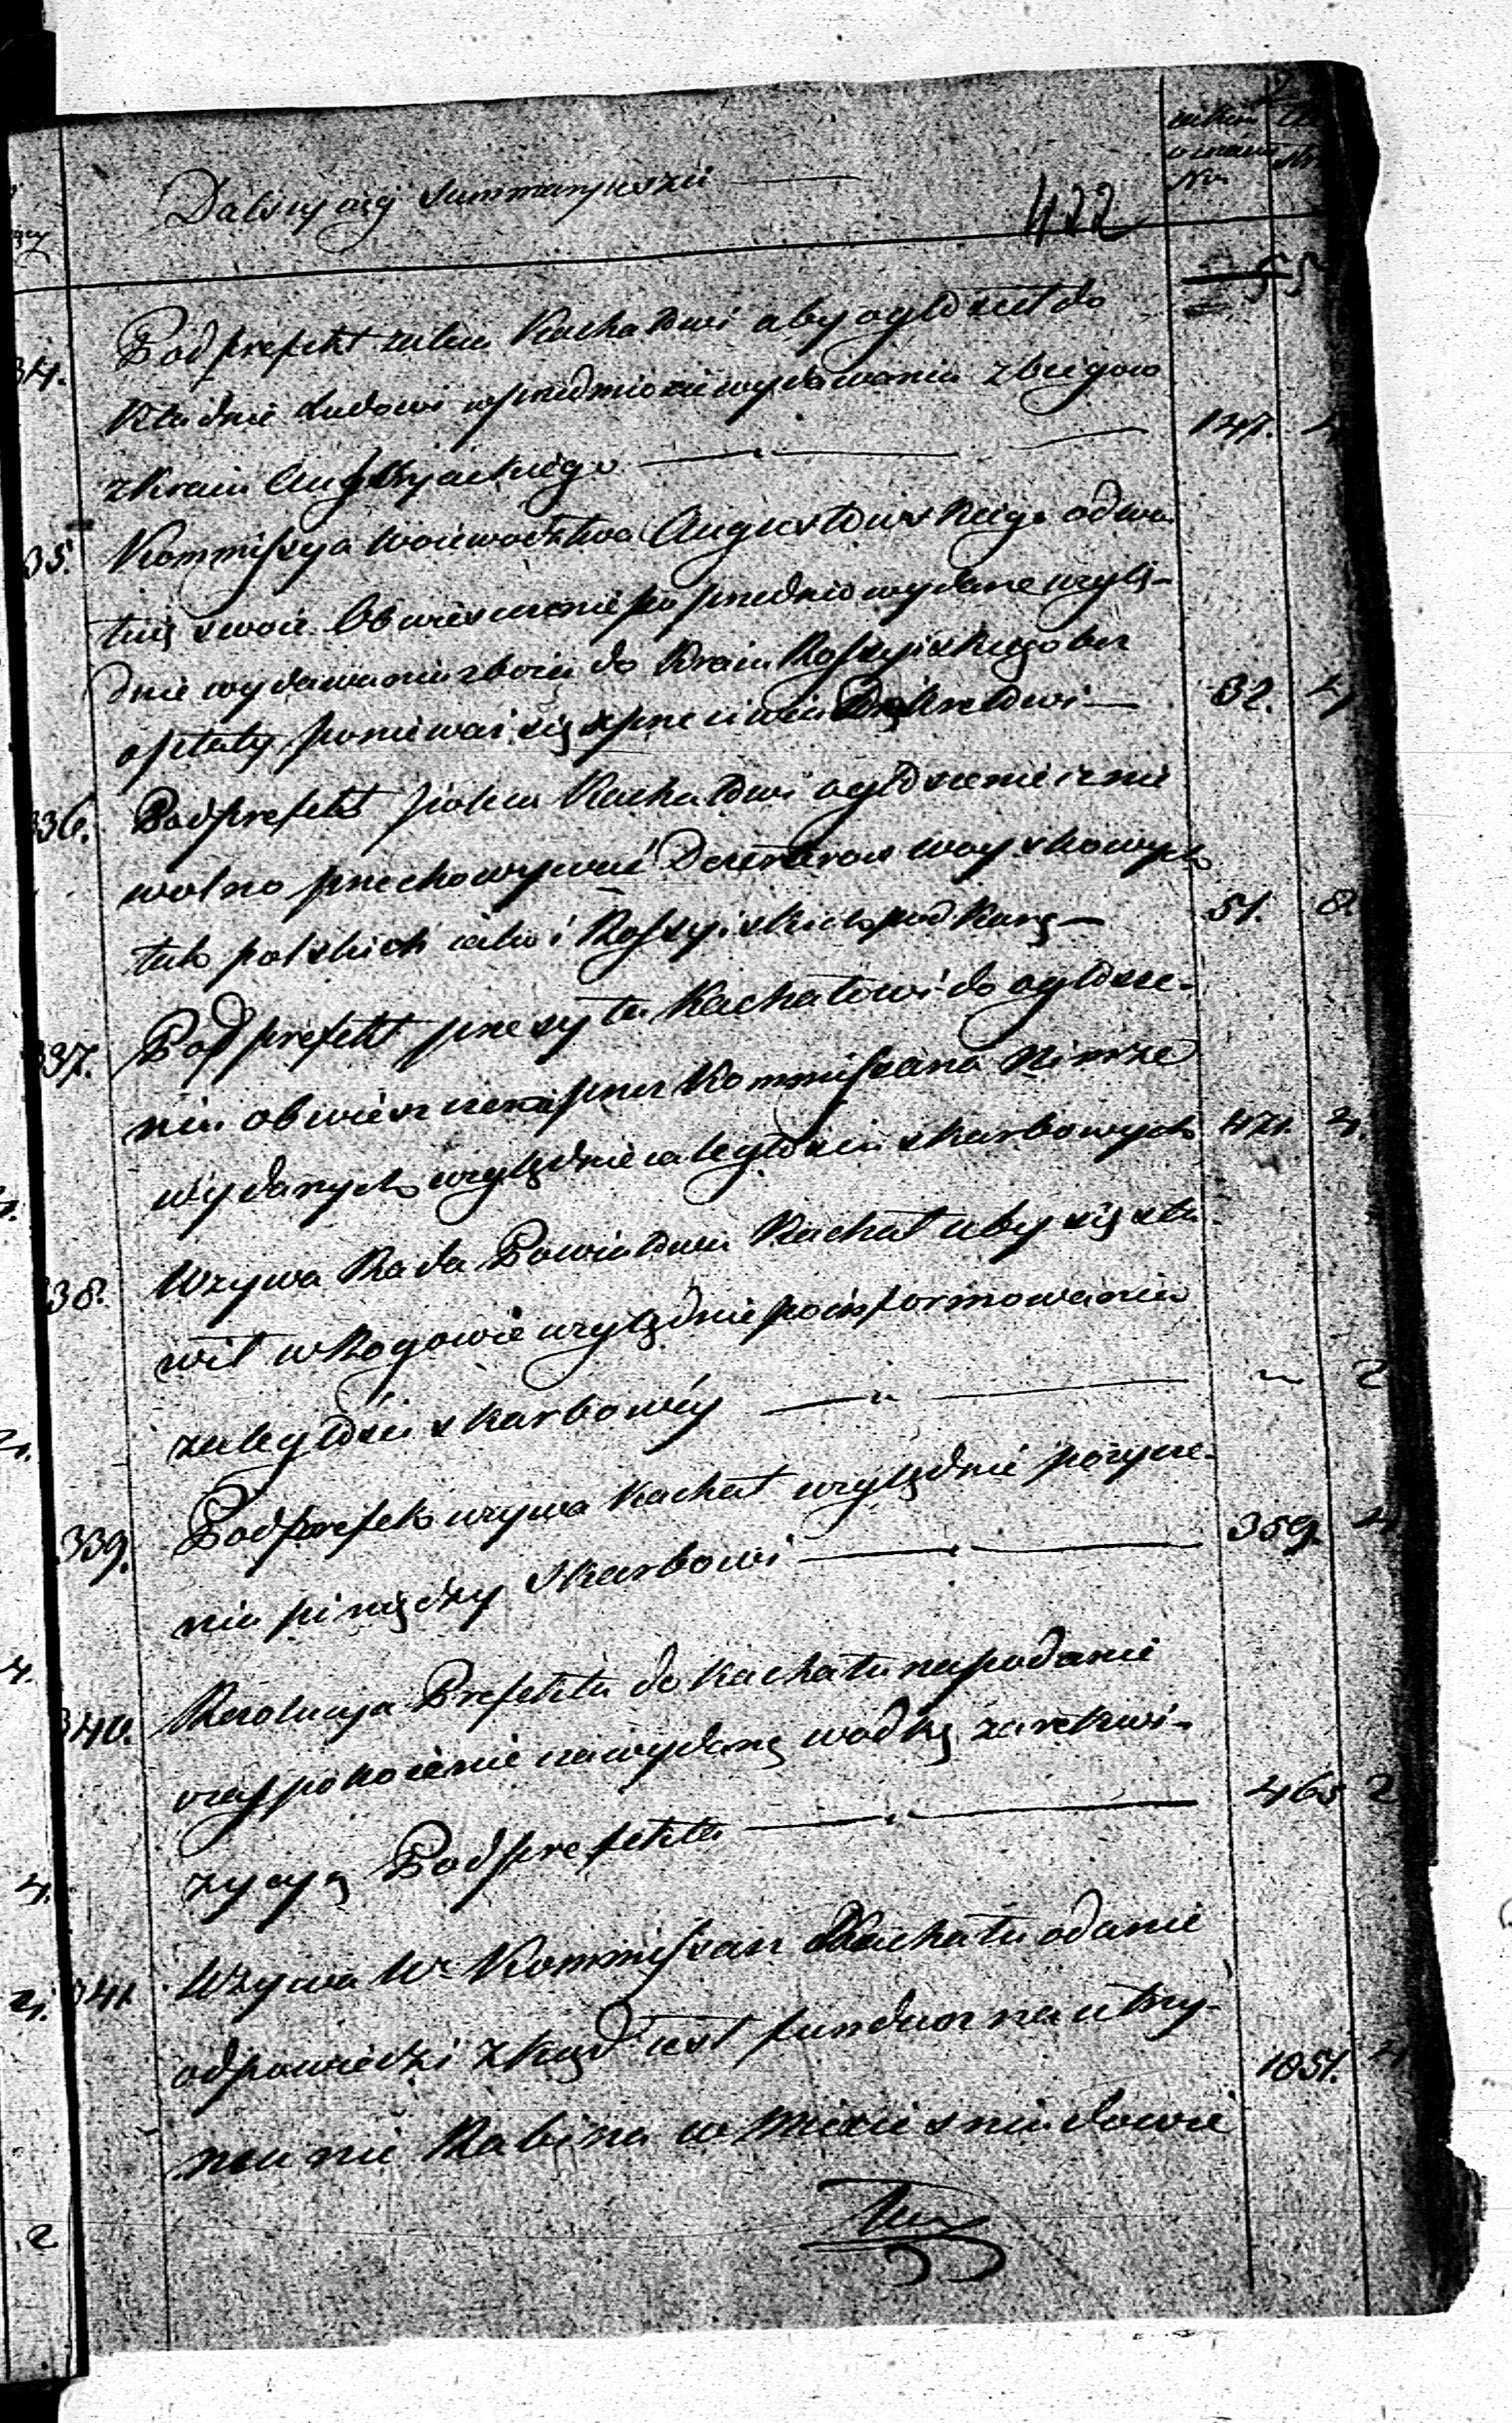 Dalszy ciąg Summaryuszu
422
Nru
55
334. Podprefekt zaleca Kachałowi aby ogłosił do
kładnie Ludowi w przedmiocie wydawania zbiegow
z kraiu Austryackiego 147. 4
335. Kommissya Woiewodztwa Augustowskiego odwo
łuię swoie Obwieszczenie poprzednio wydane wzglę-
dnie wydawania zboża do Kraiu Rossyiskiego bez
opłaty, ponieważ się sprzeciwia Dekretowi 32. 4
336. Podprefekt poleca Kachałowi ogłoszenie iz nie
wolno przechowywać Dezerterow woyskowych
tak polskich iako i Rossyiskich pod karą 51. 8.
337. Podprefekt przesyła Kachałowi do ogłosze-
niu obwieszczenie przez Kommissarza
wydanych względnie zaległości skarbowych 471. 4.
338. Wzywa Rada Powiatowa Kachał aby się sta
wił w Rogowie względnie poinformowania
zaległości skarbowéy 2
339. Podprefekt wzywa Kachał względnie pożycze-
nia pinędzy Skarbowi 359. 4
340. Rezolucya Prefekta do Kachału na podanie
o zaspokoienie za wydaną wodkę za rekwi-
zycyą Podprefekta 465 2
341. Wzywa Wny Kommissarz Kachału o danie
odpowiedzi zkąd iest fundusz na utrzy-
manie Rabina w Mieście Sniadowie 1051. 4